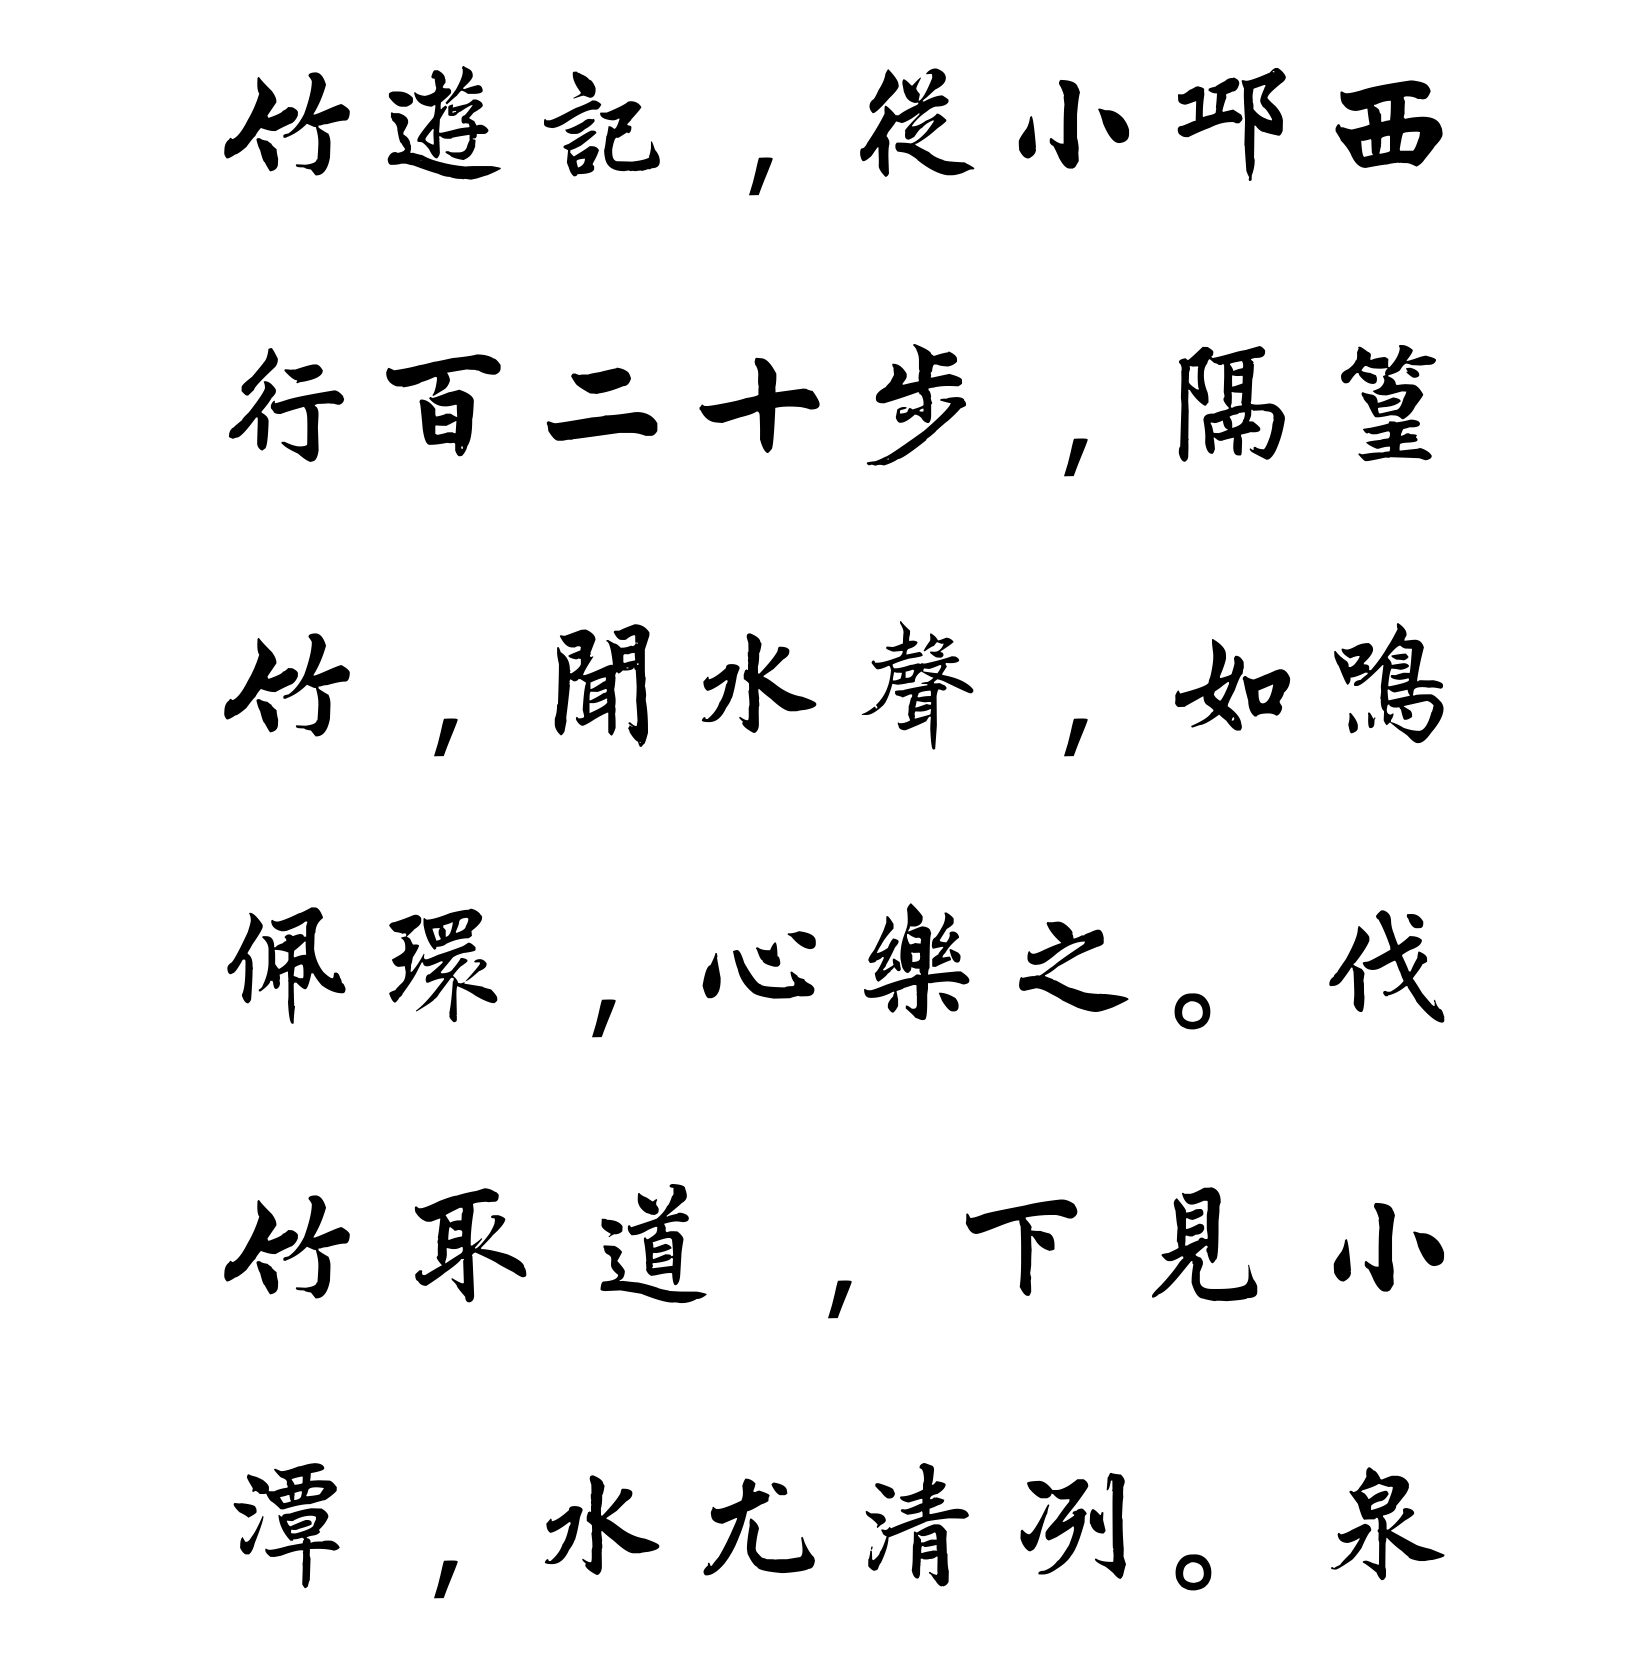 竹遊記，從小邛西
行百二十步，隔篁
竹，聞水聲，如鳴
佩環，心樂之。伐
竹取道，下見小
潭，水尤清冽。泉